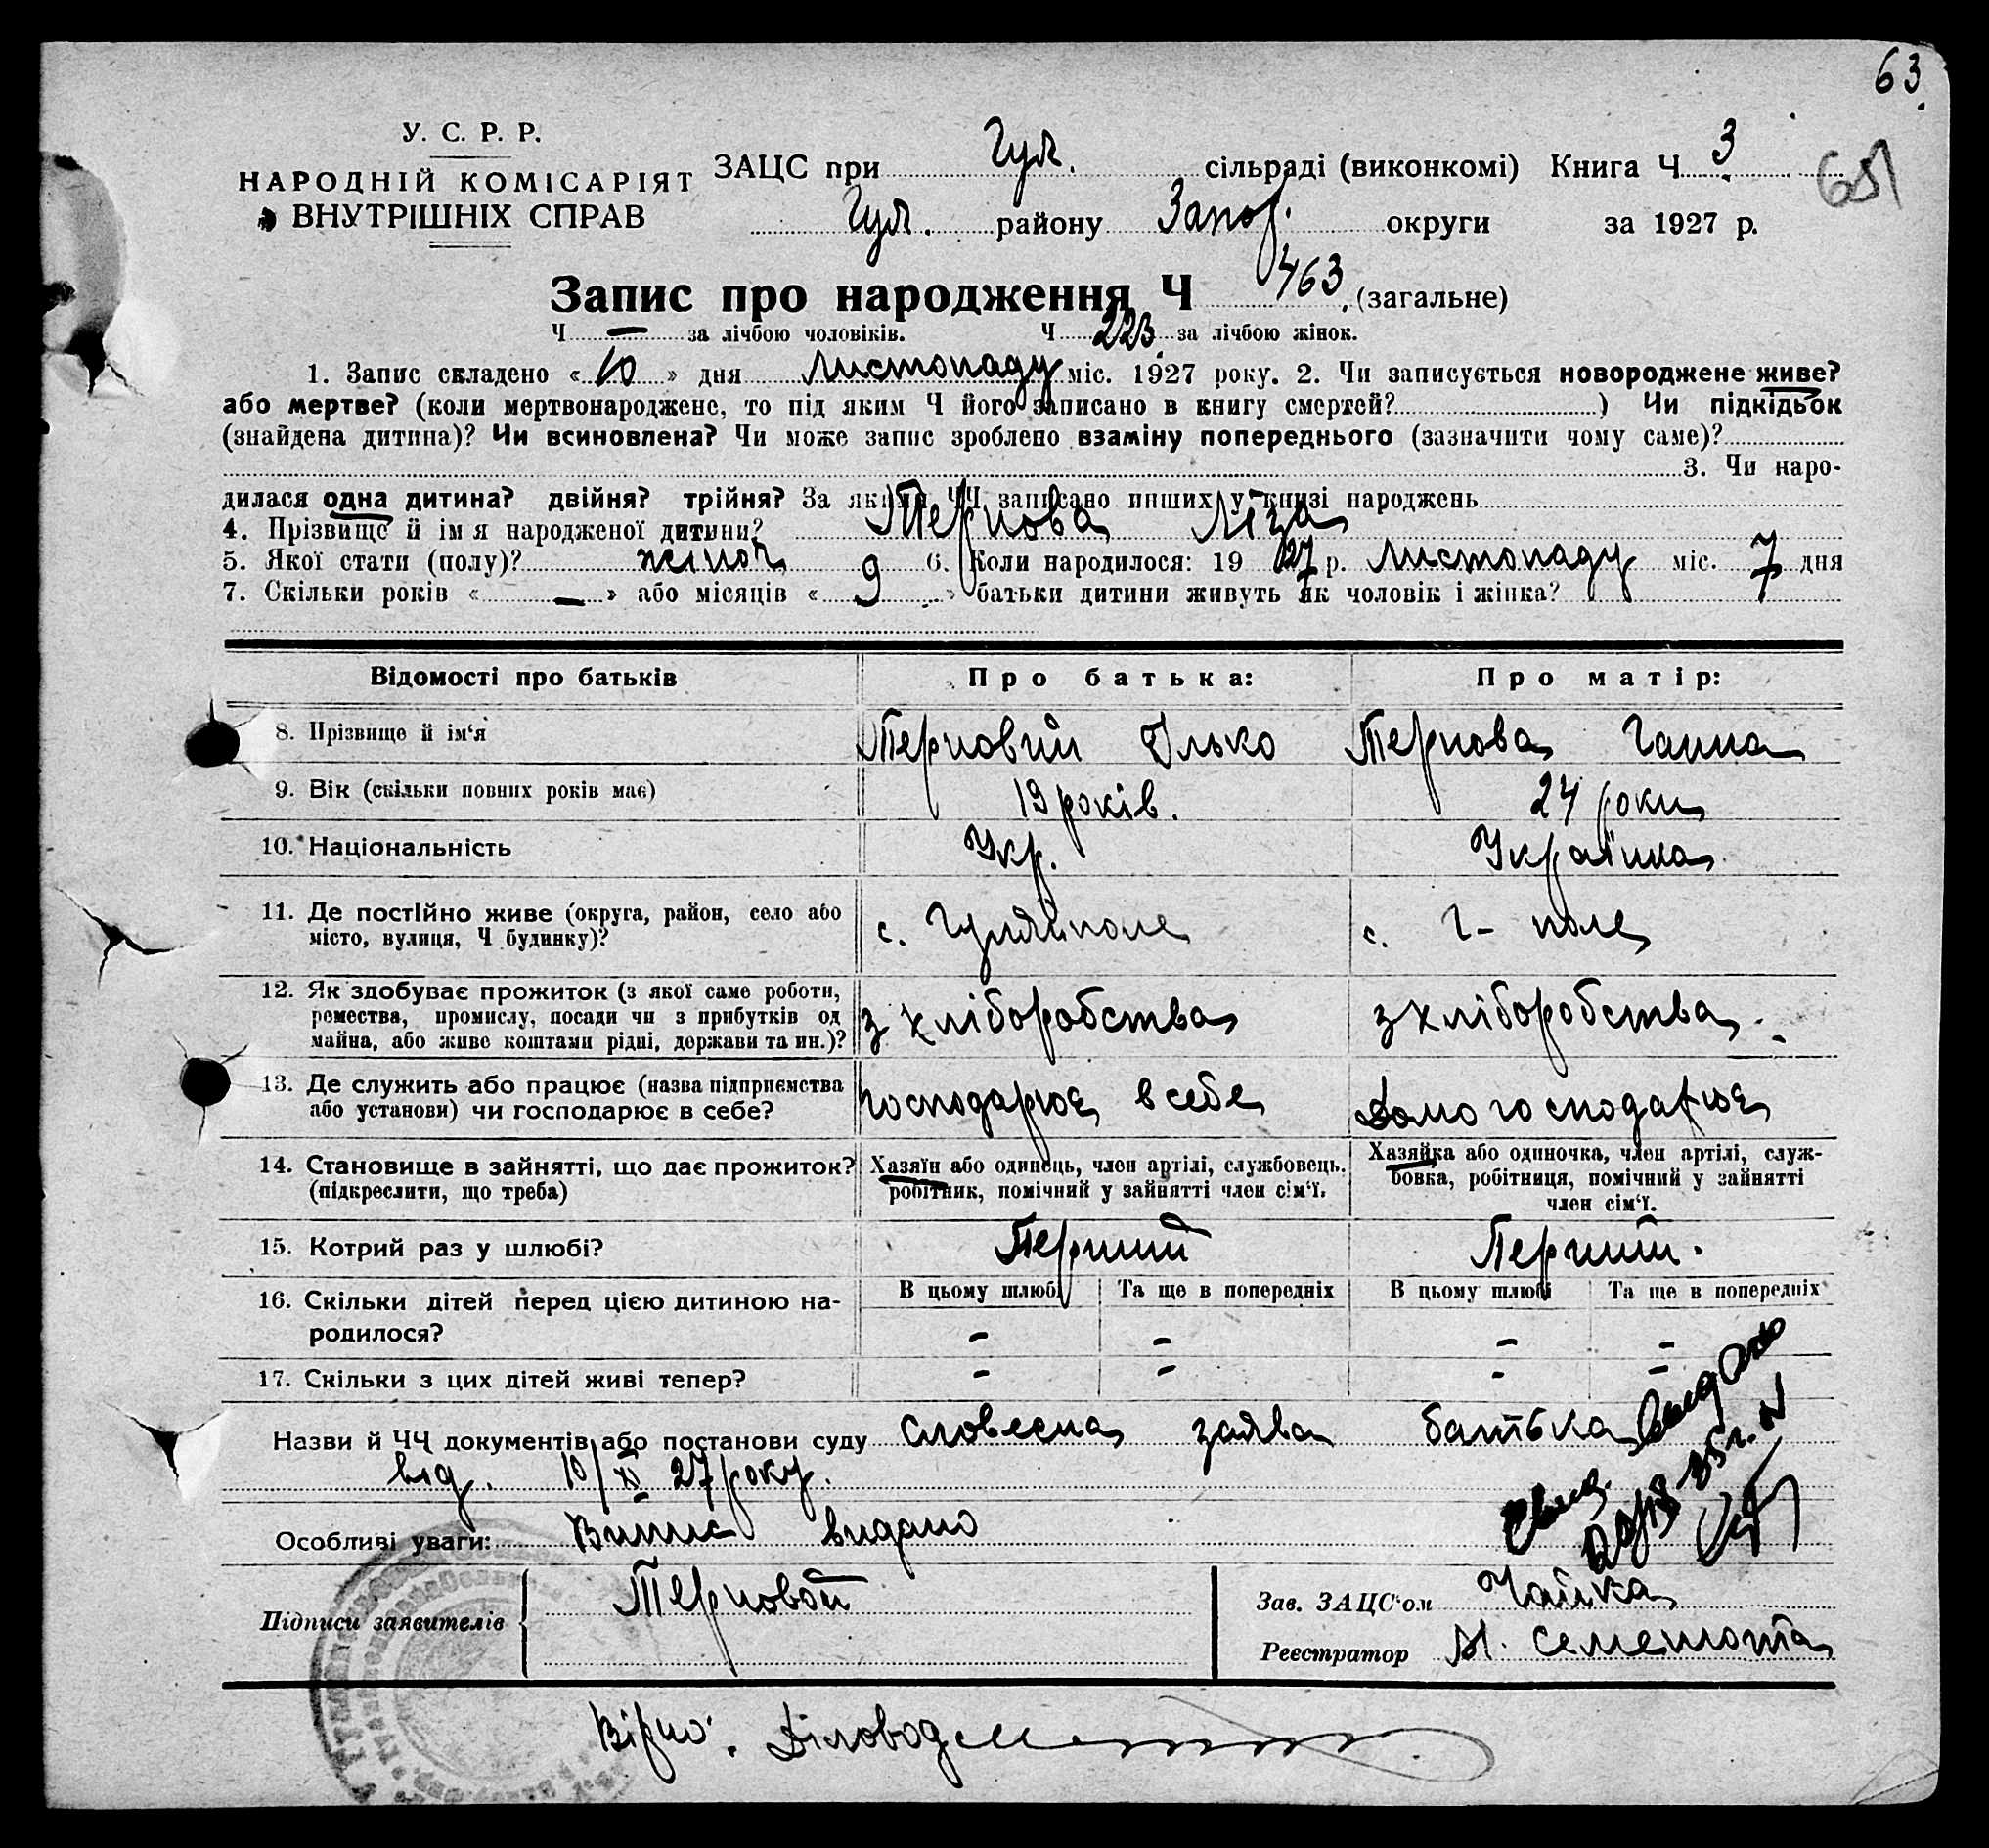 63
У. С. Р. Р.
НАРОДНІЙ КОМІСАРІЯТ
ВНУТРІШНІХ СПРАВ
ЗАЦС при Гул. сільраді (виконкомі) Книга Ч 3
651
Гул. району Запор. округи за 1927 р.
Запис про народження Ч 463 (загальне)
Ч — за лічбою чоловіків. Ч 223 за лічбою жінок.
1. Запис складено «10» дня Листопаду міс. 1927 року. 2. Чи записується новороджене живе?
або мертве? (коли мертвонароджене, то під яким Ч його записано в книгу смертей? ) Чи підкідьок
(знайдена дитина)? Чи всиновлена? Чи може запис зроблено взаміну попереднього (зазначити чому саме)?
3. Чи наро-
дилася одна дитина? двійня? трійня? За якими ЧЧ записано инших у книзі народжень
4. Прізвище й ім я народженої дитини? Тернова Ліза
5. Якої стати (полу)? жіноч 9 6. Коли народилося: 1927 р. Листопаду міс. 7 дня
7. Скільки років «—» або місяців «9» батьки дитини живуть як чоловік і жінка? 7
Відомості про батьків Про батька: Про матір:
8. Прізвище й ім‘я Терновий Ілько Тернова Ганна
9. Вік (скільки повних років має) 19 років. 24 роки
10. Національність Укр. Українка
11. Де постійно живе (округа, район, село або
місто, вулиця, Ч будинку)? с. Гуляйполе с. Г- поле
12. Як здобуває прожиток (з якої саме роботи,
ремества, промислу, посади чи з прибутків од
майна, або живе коштами рідні, держави та ин.)? з хліборобства з хліборобства
13. Де служить або працює (назва підприємства
або установи) чи господарює в себе? господарює в себе Домогосподарює
14. Становище в зайнятті, що дає прожиток?
(підкреслити, що треба)
Хазяїн або одинець, член артілі, службовець.
робітник, помічний у зайнятті член сім‘ї.
Хазяйка або одиночка, член артілі, служ-
бовка, робітниця, помічний у зайнятті
член сім‘ї.
15. Котрий раз у шлюбі? Перший Перший.
16. Скільки дітей перед цією дитиною на-
родилося?
В цьому шлюбі Та ще в попередніх В цьому шлюбі Та ще в попередніх
- - - -
17. Скільки з цих дітей живі тепер? - - - -
Назви й ЧЧ документів або постанови суду словесна заява батька
від. 10/XI 27 року.
Особливі уваги: Випис видано
Підписи заявителів Терновой
Зав. ЗАЦС‘ом Чайка
Реєстратор
Вірно: Діловод